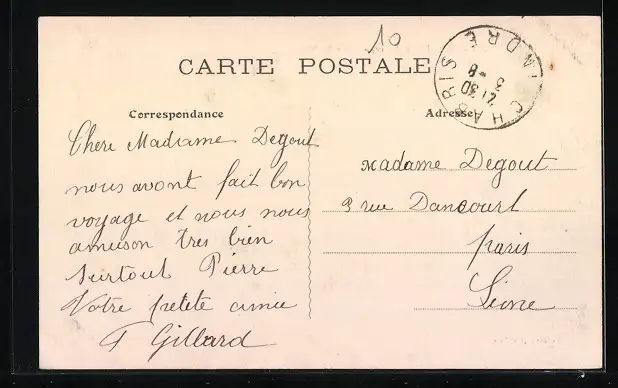 10
CARTE POSTALE
CHABRIS INDRE
21 30
3 - 8
Correspondance
Adresse
Chere Madame Degout
nous avont fait bon
voyage et nous nous
amuson tres bien
surtout Pierre
Votre petite amie
F Gillard
Madame Degout
9 rue Dancourt
paris
Seine